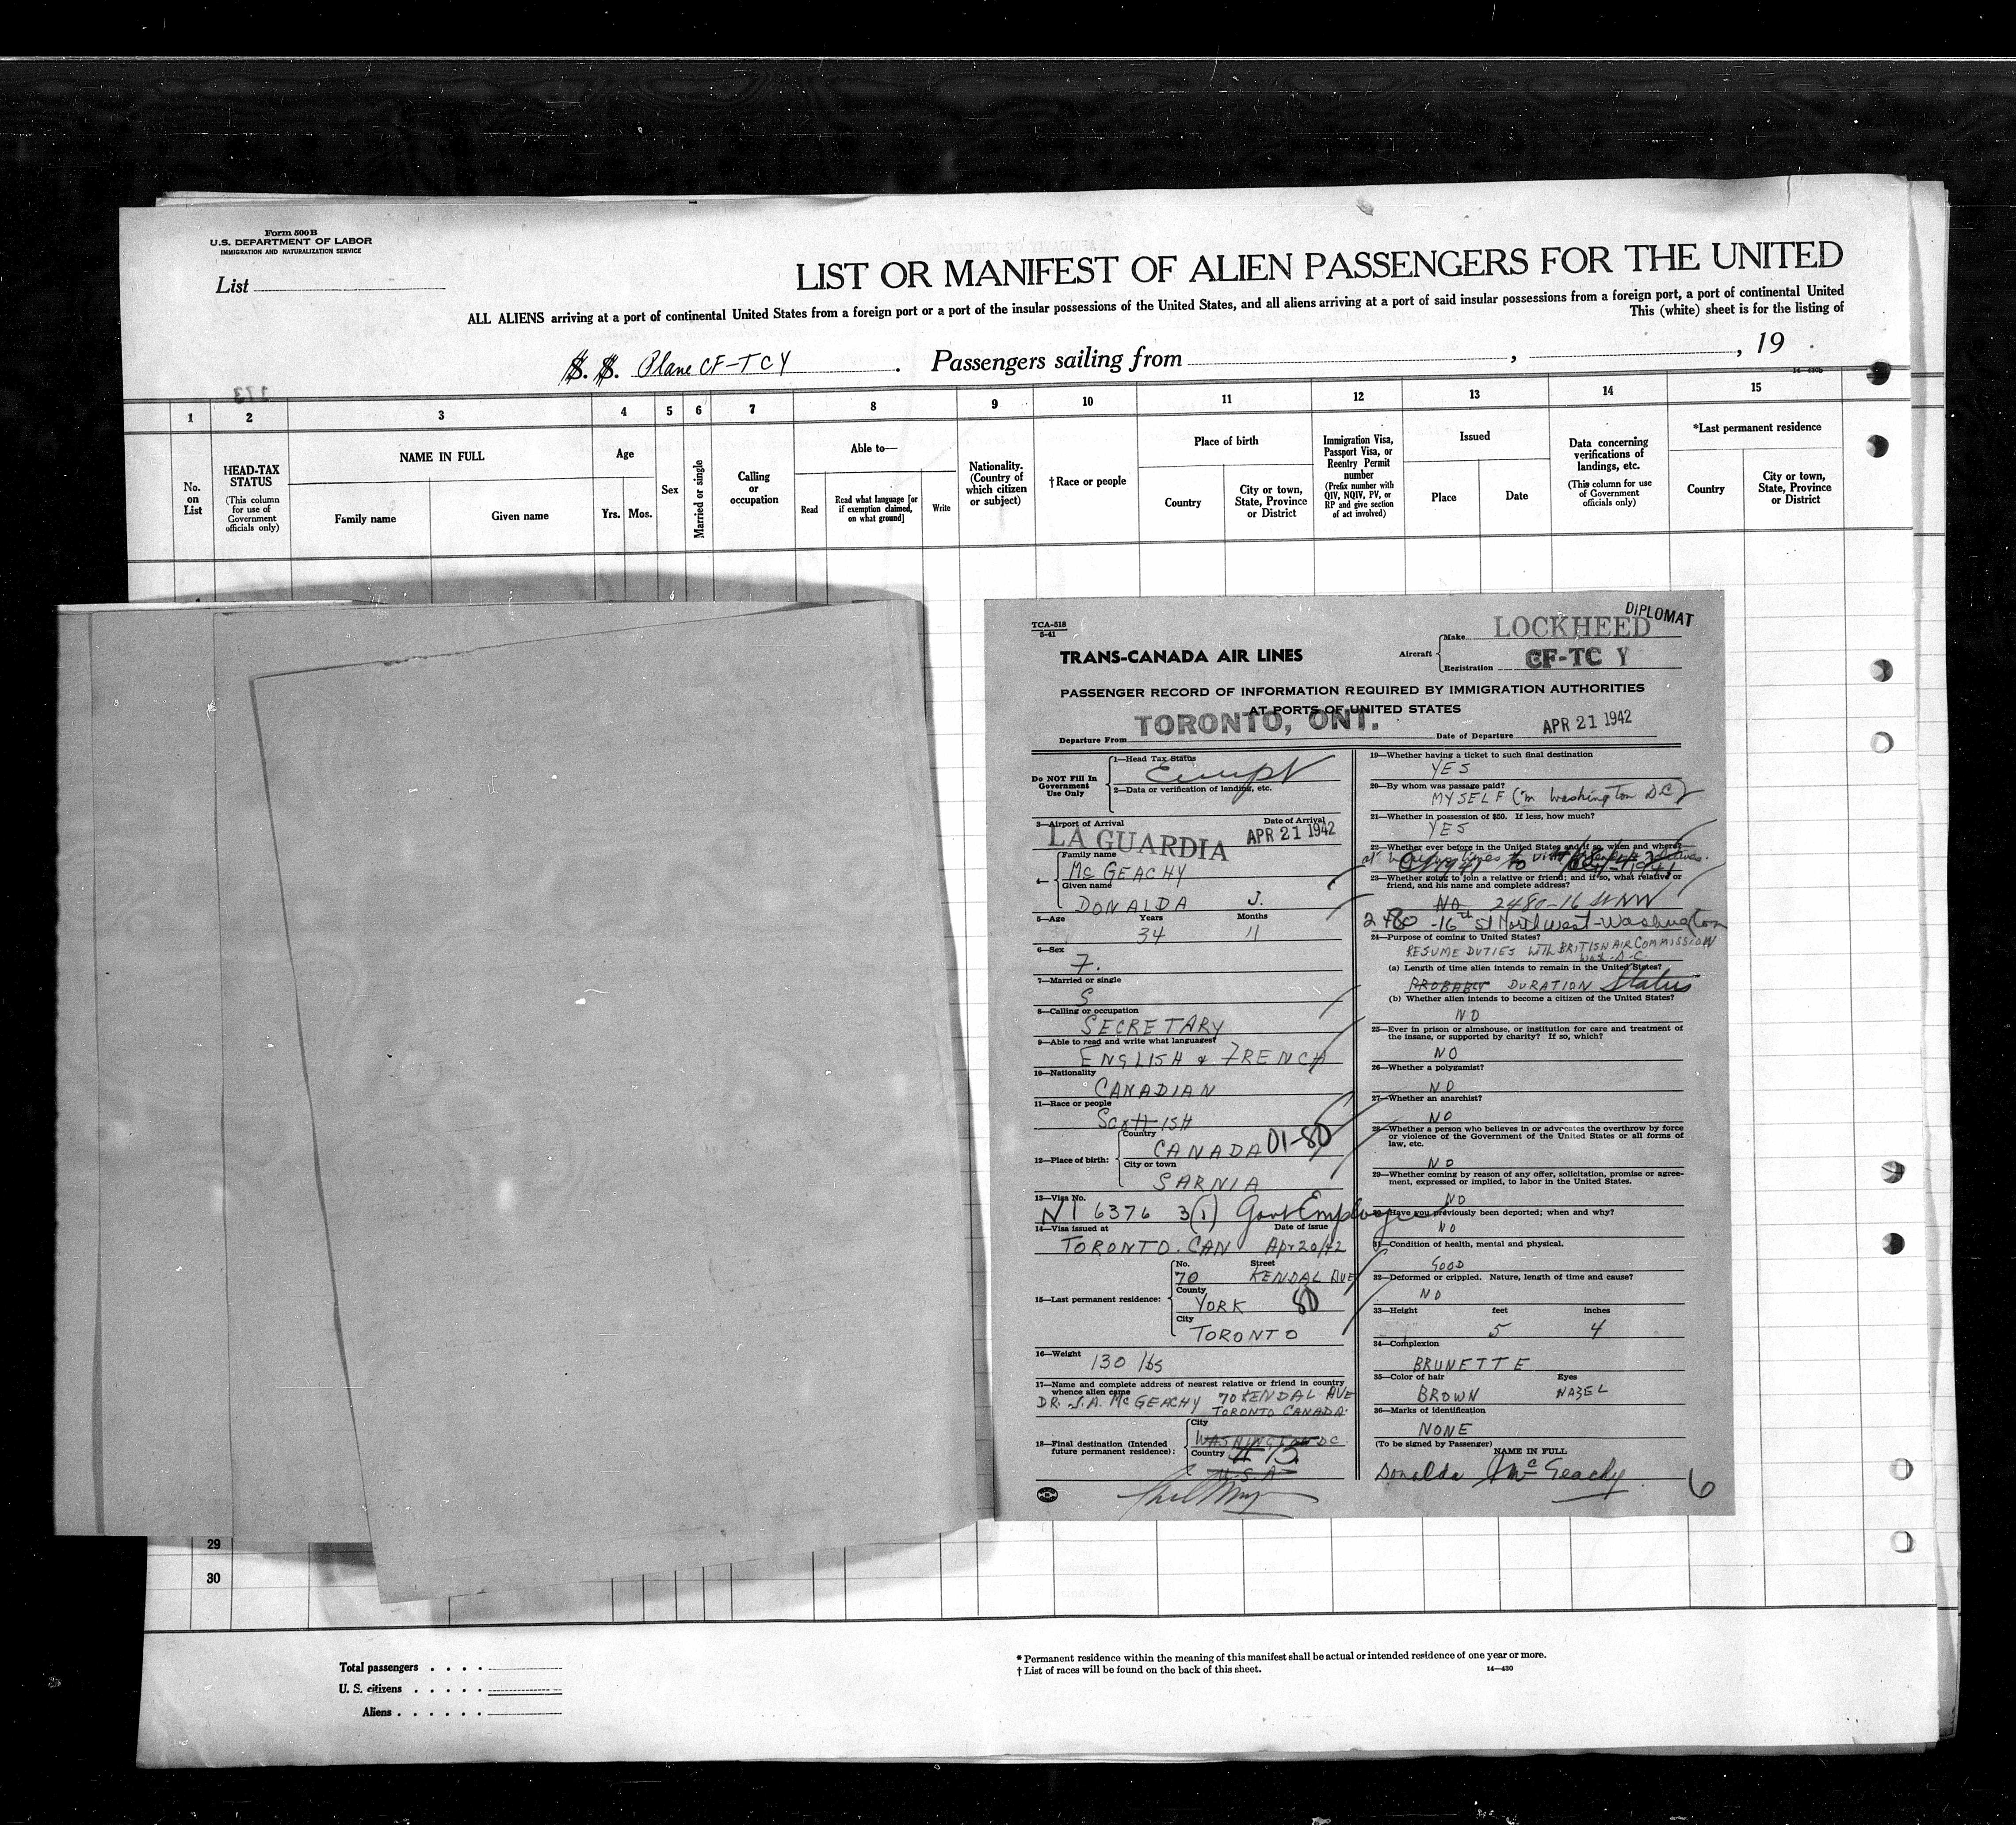 Form 500 B
U.S. DEPARTMENT OF LABOR
IMMIGRATION AND NATURALIZATION SERVICE
List
LIST OR MANIFEST OF ALIEN PASSENGERS FOR THE UNITED
ALL ALIENS arriving at a port of continental United States from a foreign port or a port of the insular possessions of the United States, and all aliens arriving at a port of said insular possessions from a foreign port, a port of continental United
This (white) sheet is for the listing of
S. S. Plane CF-TCY . Passengers sailing from , , 19 .
173
1 2 3 4 5 6 7 8 9 10 11 12 13 14 15
No. on List
HEAD-TAX STATUS
(This column for use of Government officials only)
NAME IN FULL
Family name
Given name
Age
Yrs. Mos.
Sex
Married or single
Calling or occupation
Able to—
Read
Read what language [or if exemption claimed, on what ground]
Write
Nationality. (Country of which citizen or subject)
†Race or people
Place of birth
Country
City or town, State, Province or District
Immigration Visa, Passport Visa, or Reentry Permit number
(Prefix number with QIV, NQIV, PV, or RP and give section of act involved)
Issued
Place
Date
Data concerning verifications of landings, etc.
(This column for use of Government officials only)
*Last permanent residence
Country
City or town, State, Province or District
TCA-518
5-41
DIPLOMAT
TRANS-CANADA AIR LINES
Aircraft
Make LOCKHEED
Registration CF-TC Y
PASSENGER RECORD OF INFORMATION REQUIRED BY IMMIGRATION AUTHORITIES
AT PORTS OF UNITED STATES
Departure From TORONTO, ONT. Date of Departure APR 21 1942
Do NOT Fill In Government Use Only
1—Head Tax Status
Exempt
2—Data or verification of landing, etc.
3—Airport of Arrival Date of Arrival
LA GUARDIA APR 21 1942
4— Family name
McGEACHY
Given name
DONALDA J.
5—Age Years Months
34 11
6—Sex
F.
7—Married or single
S
8—Calling or occupation
SECRETARY
9—Able to read and write what languages?
ENGLISH & FRENCH
10—Nationality
CANADIAN
11—Race or people
SCOTTISH
12—Place of birth:
Country
CANADA 01-80
City or town
SARNIA
13—Visa No.
6376 3(1) Govt Employee
14—Visa issued at Date of issue
TORONTO. CAN Apr 20/42
15—Last permanent residence:
No. Street
70 KENDAL AVE
County
YORK 80
City
TORONTO
16—Weight 130 lbs
17—Name and complete address of nearest relative or friend in country whence alien came
DR. J. A. McGEACHY 70 KENDAL AVE
TORONTO CANADA.
18—Final destination (Intended future permanent residence):
City
WASHINGTON DC
Country
U.S.A
19—Whether having a ticket to such final destination
YES
20—By whom was passage paid?
MYSELF (in Washington DC)
21—Whether in possession of $50. If less, how much?
YES
22—Whether ever before in the United States and if so, when and where?
at various times to visit
23—Whether going to join a relative or friend; and if so, what relative or friend, and his name and complete address?
NO 2480-16 St NW
2480 -16th St Northwest-Washington
24—Purpose of coming to United States?
RESUME DUTIES WITH BRITISH AIR COMMISSION
Wash-D.C.
(a) Length of time alien intends to remain in the United States?
PROBABLY DURATION Status
(b) Whether alien intends to become a citizen of the United States?
NO
25—Ever in prison or almshouse, or institution for care and treatment of the insane, or supported by charity? If so, which?
NO
26—Whether a polygamist?
NO
27—Whether an anarchist?
NO
28—Whether a person who believes in or advocates the overthrow by force or violence of the Government of the United States or all forms of law, etc.
NO
29—Whether coming by reason of any offer, solicitation, promise or agreement, expressed or implied, to labor in the United States.
NO
30—Have you previously been deported; when and why?
NO
31—Condition of health, mental and physical.
GOOD
32—Deformed or crippled. Nature, length of time and cause?
NO
33—Height feet inches
5 4
34—Complexion
BRUNETTE
35—Color of hair Eyes
BROWN HAZEL
36—Marks of identification
NONE
(To be signed by Passenger)
NAME IN FULL
Donalda J McGeachy
6
29
30
Total passengers
U. S. citizens
Aliens
* Permanent residence within the meaning of this manifest shall be actual or intended residence of one year or more.
† List of races will be found on the back of this sheet.
14—430